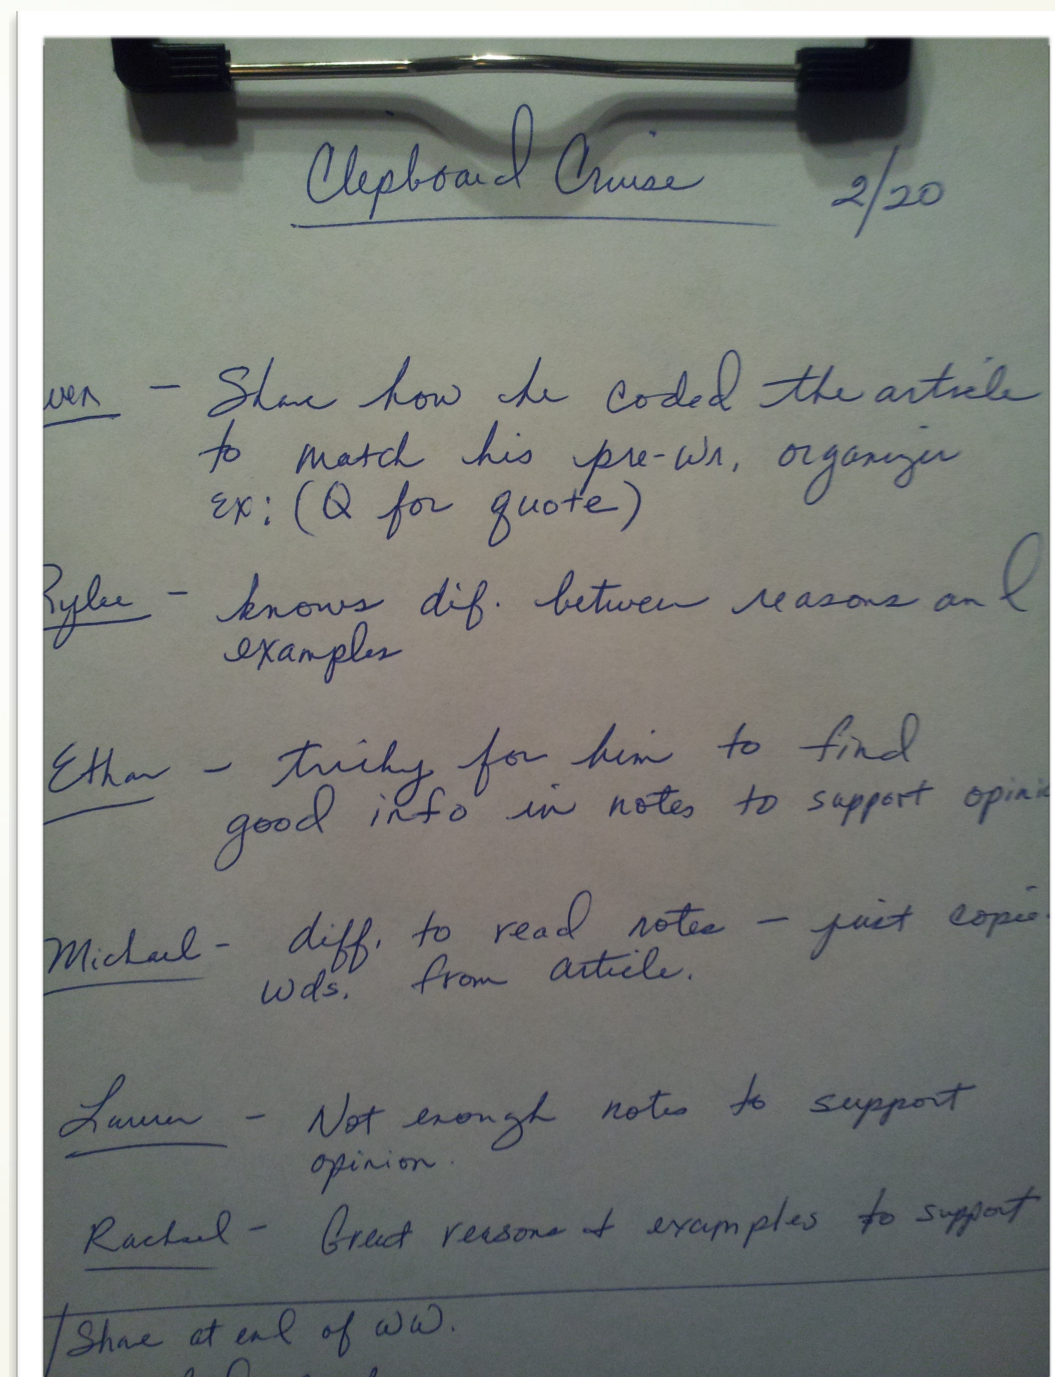 Clipboard Cruise 2/20
wen - Share how he coded the article
to match his pre-wr. organizer
Ex: (Q for quote)
Rylee - knows dif. between reasons and
examples
Ethan - tricky for him to find
good info in notes to support opinio
Michael - diff. to read notes - just copie
wds. from article.
Lauren - Not enough notes to support
opinion.
Rachael - Great reasons + examples to support
Share at end of WW.